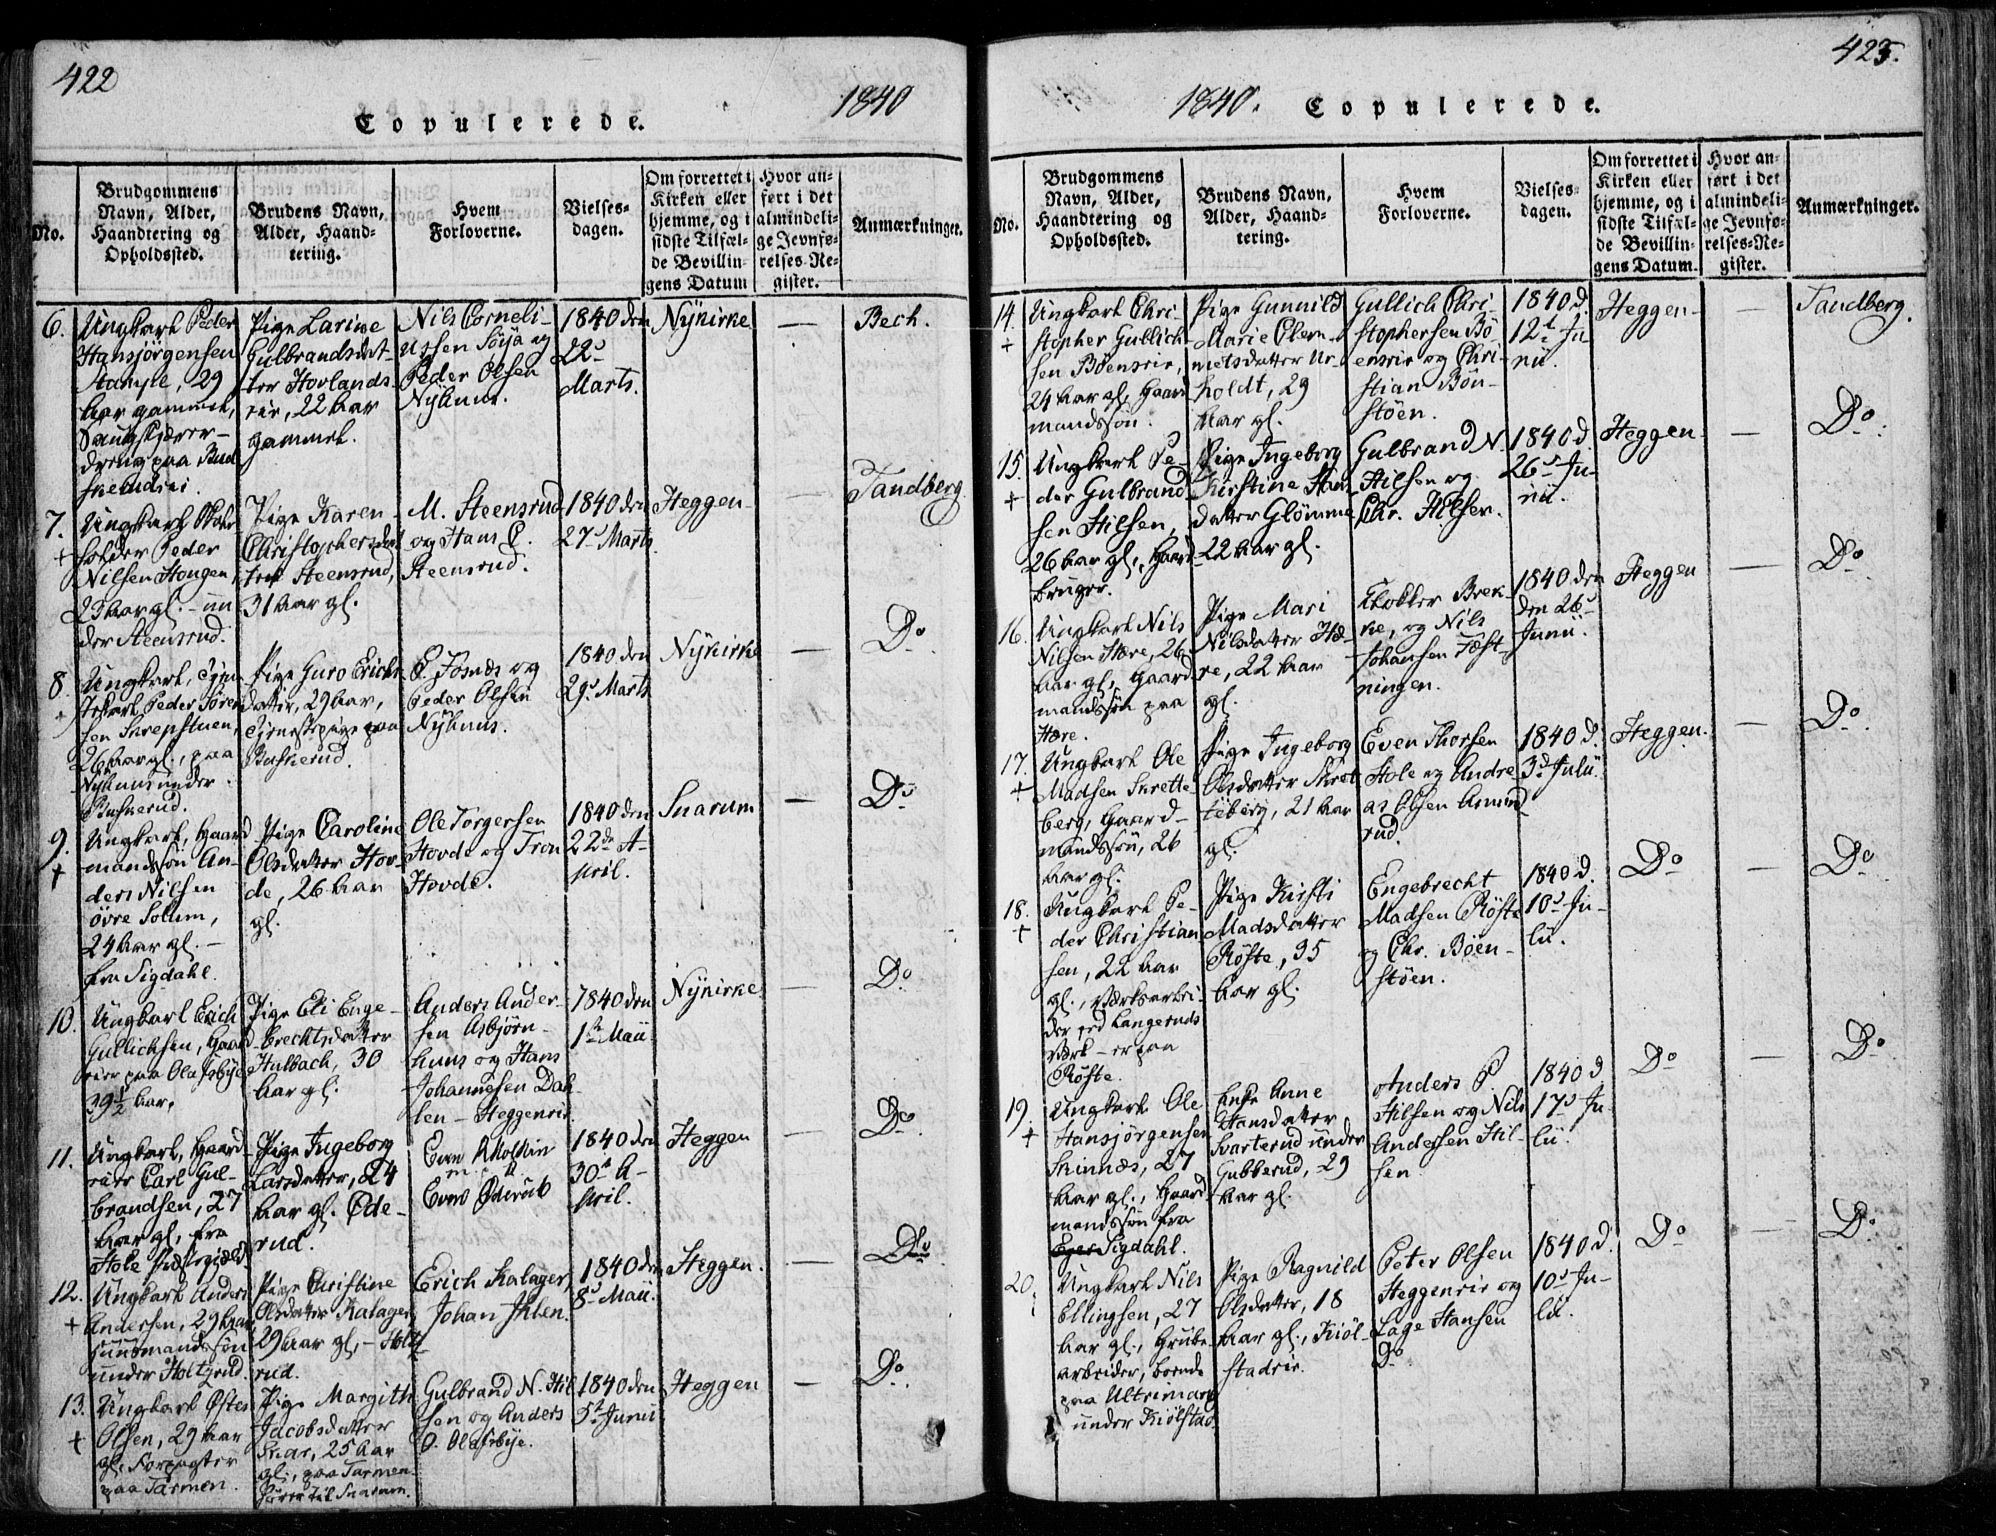 422
1840
Copulerede.
No.
Brudgommens Navn, Alder, Haandtering og Opholdssted.
Brudens Navn, Alder, Haandtering.
Hvem Forloverne.
Vielsesdagen.
Om forrettet i Kirken eller hjemme, og i sidste Tilfælde Bevillingens Datum
Hvor anført i det almindelige Jevnførelses-Register.
Anmærkninger.
6.
Ungkarl Peder
Hansjørgensen
Stampe, 29
Aar gammel,
Saugskjærer-
dreng paa Bus
kerudeie.
Pige Larine
Gulbrandsdat-
ter Hovlands-
eie, 22 Aar
gammel.
Nils Corneli-
ussen Söya og
Peder Olsen
Nyhuus.
1840 den
22de
Marts.
Nykirke
—
Bech.
7.
+
Ungkarl Skole-
holder Peder
Nilsen Hougen,
23 Aar gl. - un
der Steensrud.
Pige Karen
Christophersdat
ter Steensrud,
31 Aar gl.
M. Steensrud
og Hans C.
Steensrud.
1840 den
27de Marts
Heggen
—
Tandberg
8.
Ungkarl, Tjene-
stekarl Peder Sören
sen Skrepstuen,
26 Aar gl., paa
Nyhuus under
Buskerud.
Pige Guro Erichs
datter, 29 Aar,
Tjenestepige paa
Buskerud.
E. Fosnæs og
Peder Olsen
Nyhuus.
1840 den
29de Marts
Nykirke
—
Do
9.
+
Ungkarl, Gaard
mandssön An-
ders Nilsen
övre Solum,
24 Aar gl. -
fra Sigdahl.
Pige Caroline
Olsdatter Hov-
de, 26 Aar
gl.
Ole Torgersen
Hovde og Tron
Hovde.
1840 den
22de A-
pril.
Snarum
—
Do
10.
Ungkarl Erich
Gullichsen, Gaard
eier paa Olafsbye
39½ Aar,
Pige Eli Enge-
brechtsdatter
Hulbach, 30
Aar gl.
Anders Ander-
sen Asbjørn-
huus og Hans
Johannesen Dah
len - Heggeneie
1840 den
1ste Maii
Nykirke
—
Do
11.
Ungkarl, Gaard
eier Carl Gul-
brandsen, 27
Aar gl., fra
Hole Præstegjæld
Pige Ingeborg
Larsdatter, 24
Aar gl. Ode-
rud.
Even
Even Oderud
1840 den
30te A-
pril.
Heggen
—
Do
12.
+
Ungkarl Anders
Andersen, 29 Aar,
Huusmandssön
under Holterud.
Pige Christine
Olsdatter Kalager
29 Aar gl, - Holte
rud.
Erich Kalager,
Johan Ihlen.
1840 den
8de Maii.
Heggen.
—
Do
13.
+
Ungkarl Østen
Olsen, 29 Aar
gl. Forpagter
paa Tarmen.
Pige Margith
Jacobsdatter
Snar, 25 Aar
gl., paa Tarmen
hörer til Snarum.
Gulbrand N. Hil
sen og Anders
O. Olafsbye.
1840 den
5te Junii
Heggen
—
Do
423.
1840.
Copulerede.
No.
Brudgommens Navn, Alder, Haandtering og Opholdssted.
Brudens Navn, Alder, Haandtering.
Hvem Forloverne.
Vielsesdagen.
Om forrettet i Kirken eller hjemme, og i sidste Tilfælde Bevillingens Datum.
Hvor anført i det almindelige Jevnførelses-Register.
Anmærkninger.
14.
+
Ungkarl Chri-
stopher Gullich
sen Böenseie,
24 Aar gl, Gaard
mandssön.
Pige Gunnild
Marie Clem-
metsdatter Ur-
holdt, 29
Aar gl.
Gullich Chri-
stophersen Bö-
enseie og Chri-
stian Bön-
stöen.
1840 d.
12te Ju-
nii.
Heggen
—
Tandberg.
15.
+
Ungkarl Pe-
der Gulbrand
sen Hilsen,
26 Aar gl., Gaard
bruger.
Pige Ingeborg
Kirstine Hans
datter Glömme
22 Aar gl.
Gulbrand N.
Hilsen og
Chr. Hilsen.
1840 d.
26de Ju-
nii.
Heggen
—
Do.
16.
Ungkarl Nils
Nilsen Hære, 26
Aar gl, Gaard
mandssön paa
Hære.
Pige Mari
Nilsdatter Hæ-
re, 22 Aar
gl.
Klokker Brek-
ke, og Nils
Johansen Fæst-
ningen.
1840 den
den 26de
Junii.
Heggen
—
Do
17.
+
Ungkarl Ole
Madsen Skrette-
berg, Gaard-
mandssön, 26
Aar gl.
Pige Ingeborg
Olsdatter Skret
teberg, 21 Aar
gl.
Even Thorsen
Hole og Andre-
as Olsen Asmind
rud.
1840 d.
3die Julii.
Heggen.
—
Do
18.
+
Ungkarl Pe-
der Christian
sen, 22 Aar
gl., Værksarbei-
der ved Langeruds
Værk - er paa
Röste.
Pige Kirsti
Madsdatter
Röste, 35
Aar gl.
Engebrecht
Madsen Röste
og Chr. Böen-
stöen.
1840 d.
10de Ju-
lii.
Do
—
Do
19.
+
Ungkarl Ole
Hansjörgensen
Skinnæs, 27
Aar gl., Gaard
mandssön fra
Eger Sigdahl.
Enke Anne
Hansdatter
Svarterud under
Gubberud, 29
Aar gl.
Anders P.
Hilsen og Nils
Andersen Hil-
sen.
1840 d
17de Ju-
lii.
Do
—
Do
20.
Ungkarl Nils
Ellingsen, 27
Aar gl., Grube-
arbeider, boende
paa Ultrimark
under Kiölstad.
Pige Ragnild
Olsdatter, 18
Aar gl., Kiöl-
stadeie.
Peter Olsen
Heggeneie og
Lage Hansen
Do
1840 d.
10de Ju-
lii.
Do
—
Do